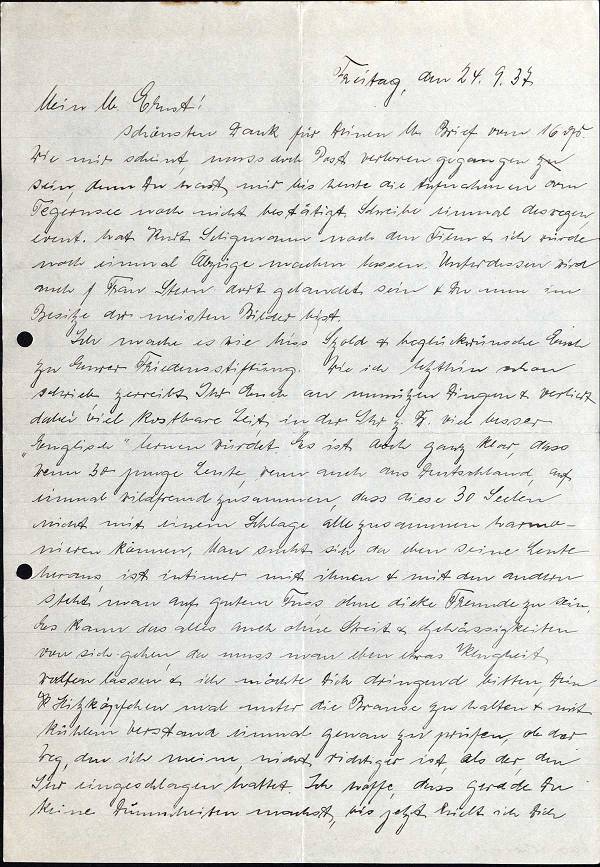 Freitag, den 24. 9. 37
Mein lb. Ernst!
Schönsten Dank für Deinen lb. Brief vom 16 ds.
Wie mir scheint, muss doch Post verloren gegangen zu
sein, denn Du hast mir bis heute die Aufnahmen vom
Tegernsee noch nicht bestätigt. Schreibe einmal deswegen,
event. hat Kurt Seligmann noch den Film & ich würde
noch einmal Abzüge machen lassen. Unterdessen wird
auch Frau Stern dort gelandet sein & Du nun im
Besitze der meisten Bilder bist.
Ich mache es wie Miss Szold & beglückwünsche Euch
zu Eurer Friedensstiftung. Wie ich letzthin schon
schrieb zerreibt Ihr Euch an unnützen Dingen & verliert
dabei viel kostbare Zeit in der Ihr z. B. viel besser
"Englisch" lernen würdet. Es ist doch ganz klar, dass
wenn 30 junge Leute, wenn auch aus Deutschland, auf
einmal wildfremd zusammen, dass diese 30 Seelen
nicht mit einem Schlage alle zusammen harmo-
nieren können. Man sucht sich da eben seine Leute
heraus, ist intimer mit ihnen & mit den andern
steht man auf gutem Fuss, ohne dicke Freunde zu sein.
Es kann das alles auch ohne Streit & Gehässigkeiten
von sich gehen, da muss man eben etwas Klugheit
walten lassen & ich möchte Dich dringend bitten, Dein
Hitzköpfchen mal unter die Brause zu halten & mit
kühlem Verstand einmal genau zu prüfen, ob der
Weg, den ich meine, nicht richtiger ist, als der, den
Ihr eingeschlagen hattet. Ich hoffe, dass gerade Du
keine Dummheiten machst, bis jetzt hielt ich Dich